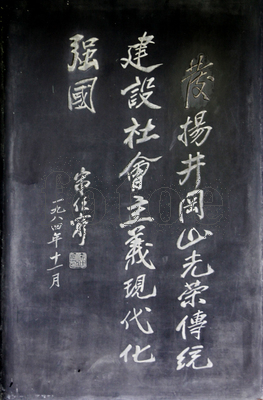 發揚井岡山光荣傳统
建設社會主義現代化
强國
宋任窮
一九八四年十一月